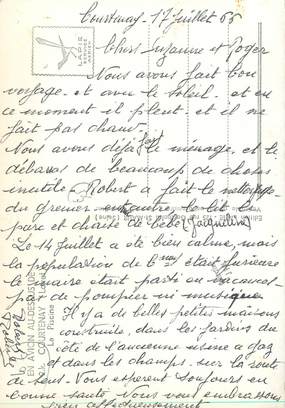 Courtenay 17 juillet 66
Chers Suzanne et Roger
Nous avons fait bon
voyage et avec le soleil et en
ce moment il pleut et il ne
fait pas chaud.
Nous avons déjà fait le ménage, et le
débarras de beaucoup de choses
inutile Robert a fait le nettoyage
du grenier le lit le
parc et chaise de bébé (Jacqueline)
Le 14 juillet a été bien calme, mais
la population de était furieuse
le maire était parti en vacances
pas de pompier ni musique
Il y a de belles petites maisons
construite dans les jardins du
côté de l'ancienne usine a gaz
et dans les champs sur la route
de Sens. Nous esperont toujours en
bonne santé Nous vous embrassons
bien affectueusement
LAPIE
SERVICE
AERIEN
EN AVION AU-DESSUS DE
COURTENAY
La Piscine